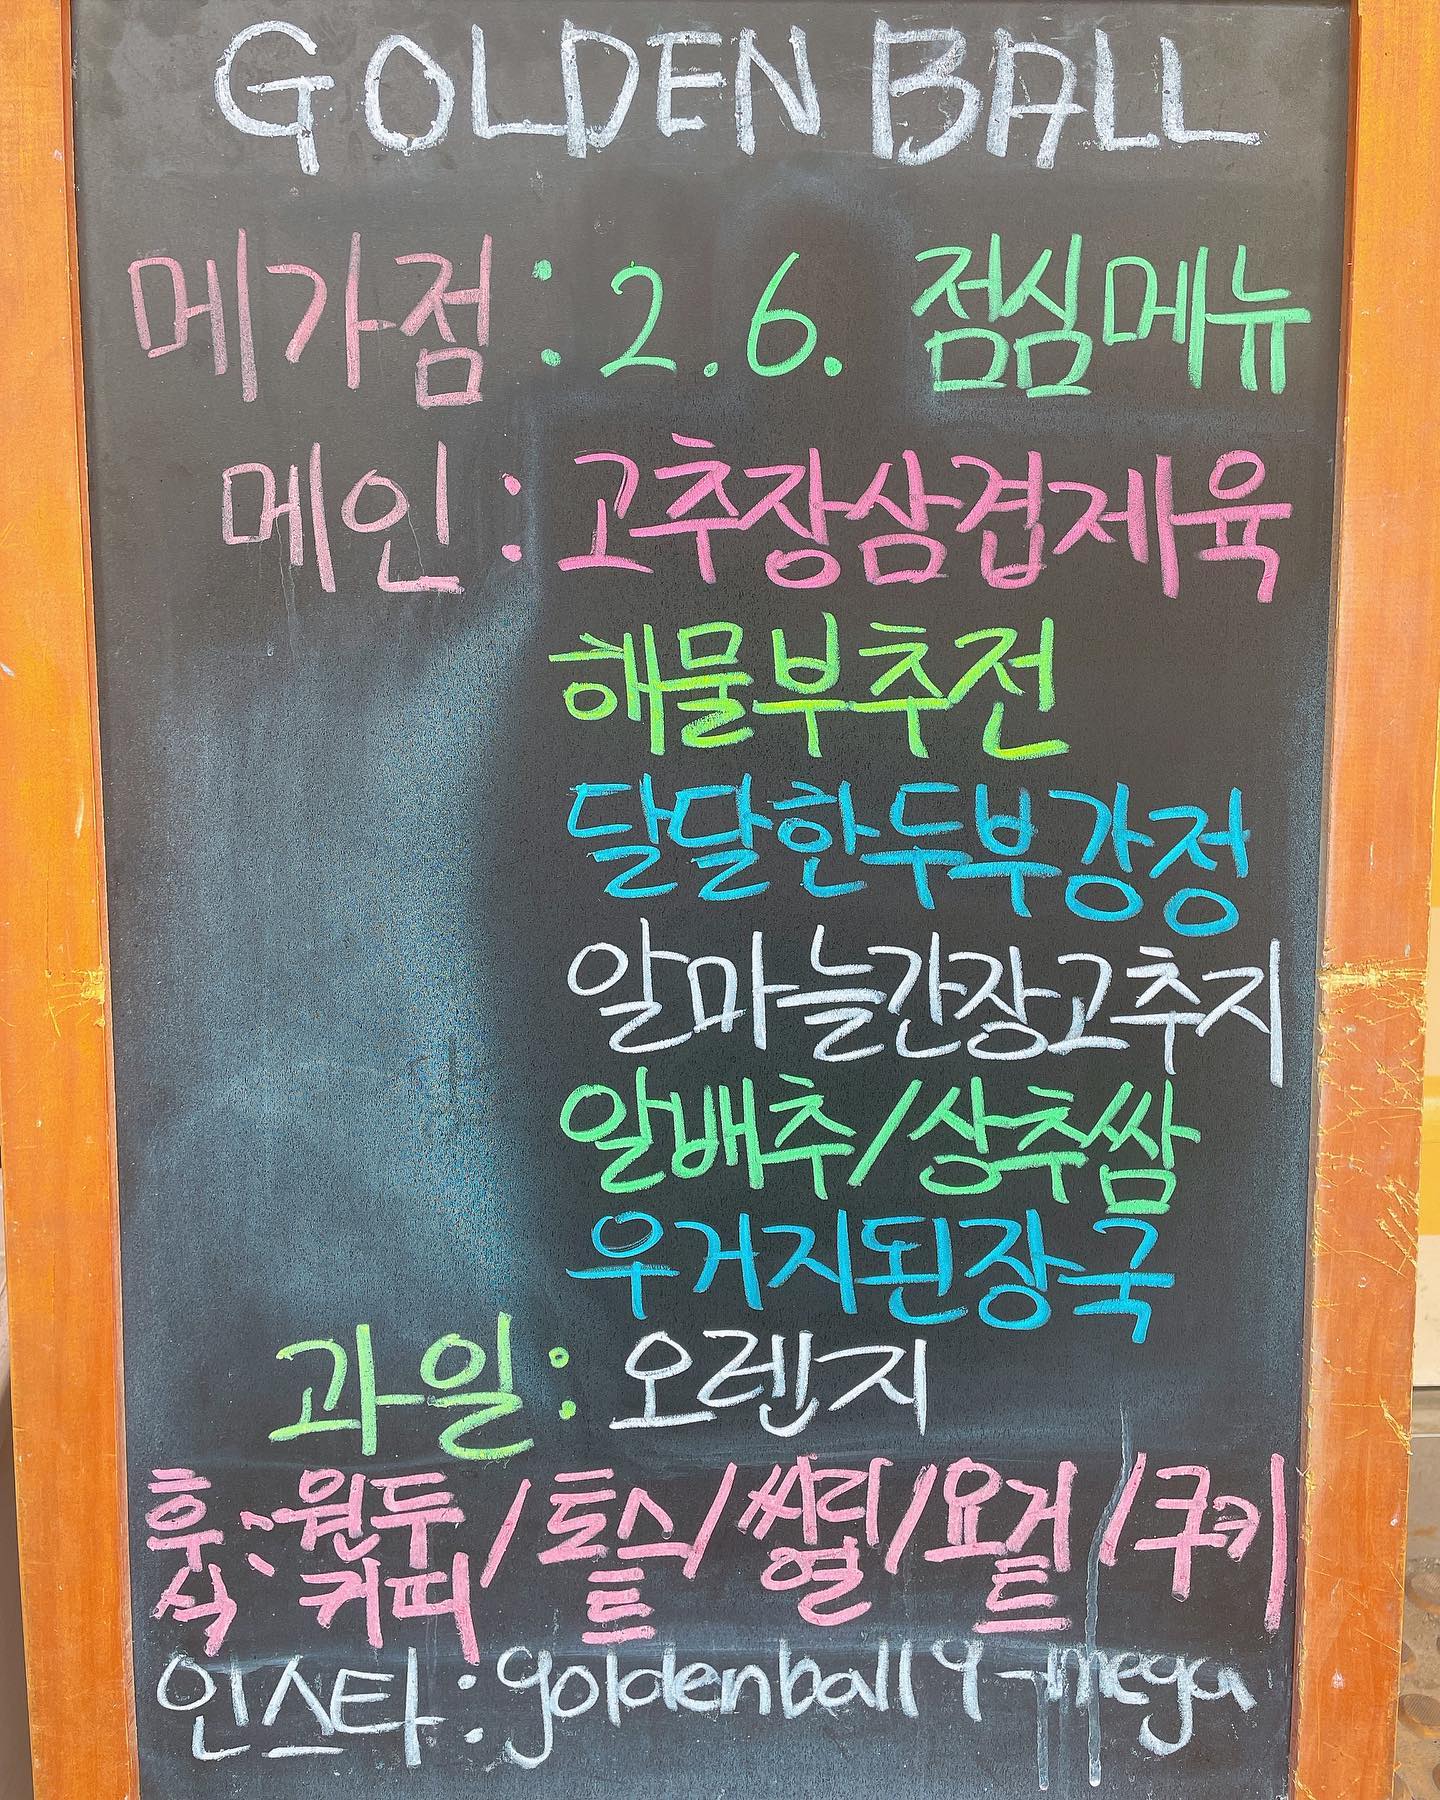 GOLDEN BALL
메가점 : 2.6. 점심메뉴
메인 : 고추장삼겹제육
해물부추전
달달한두부강정
알마늘간장고추지
알배추/상추쌈
우거지된장국
과일 : 오렌지
후식 : 원두커피/토스트/씨리얼/요거트/쿠키
인스타 : goldenball9_mega